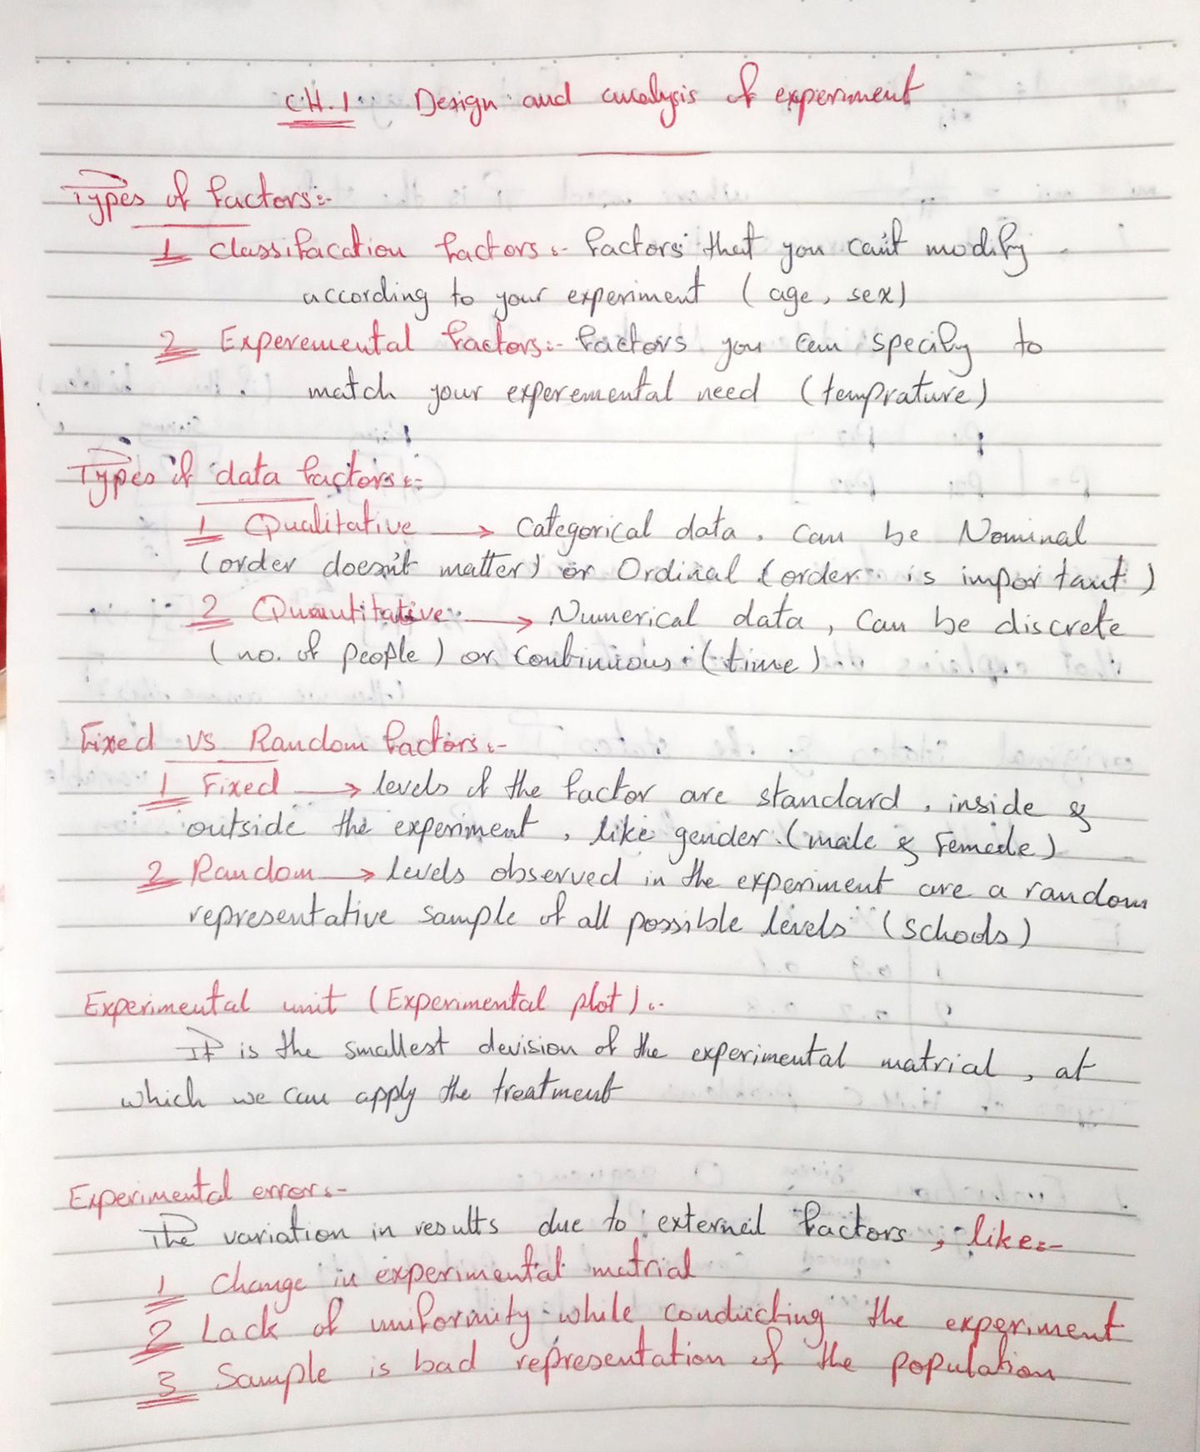 CH.1: Design and analysis of experiment
Types of factors:-
1 Classifacation factors:- factors that you can't modify
according to your experiment (age, sex)
2 Experemental factors:- factors you can specify to
match your experemental need (temprature)
Types of data factors:-
1 Qualitative → Categorical data. Can be Nominal
(order doesn't matter) or Ordinal (order is important)
2 Quantitative → Numerical data, Can be discrete
(no. of people) or Continuious (time)
Fixed vs Random factors:-
1 Fixed → levels of the factor are standard, inside &
outside the experiment, like gender (male & Female)
2 Random → levels observed in the experiment are a random
representative sample of all possible levels (Schools)
Experimental unit (Experimental plot):-
It is the smallest devision of the experimental matrial, at
which we can apply the treatment
Experimental error:-
The variation in results due to external factors, like:-
1 Change in experimental matrial
2 Lack of uniformity while conducting the experiment
3 Sample is bad representation of the population